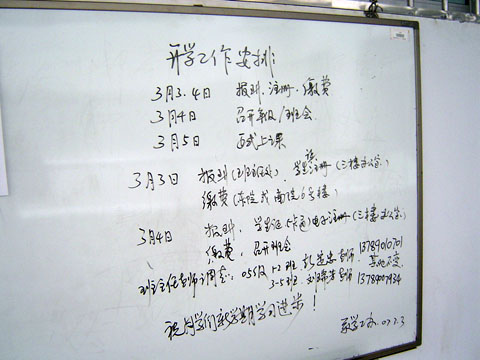 开学工作安排:
3月3.4日 报到.注册.缴费
3月4日 召开年级/班会
3月5日 正式上课
3月3日 报到(班主任处)、学生注册(三楼办公室)
缴费(东院或南院6号楼)
3月4日 报到. 学生证(卡)电子注册(三楼办公室)
缴费. 召开班会
班主任 05级 1-2班 老师 13789010701
3-5班 老师 13787009934 其他不变
祝同学们新学期学习进步!
系学工办.07.2.3